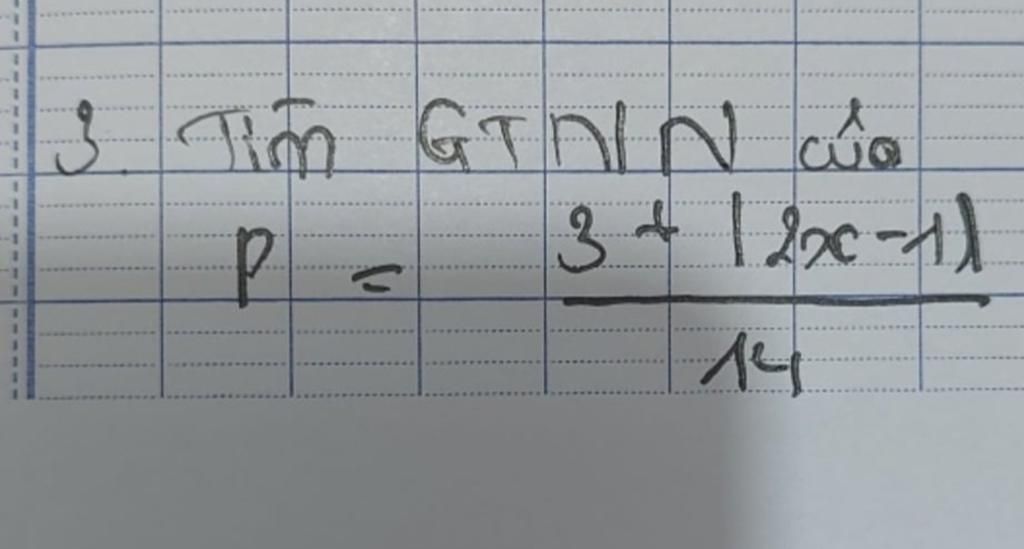 3. Tìm GTNN của
P = 3 + |2x - 1|
14